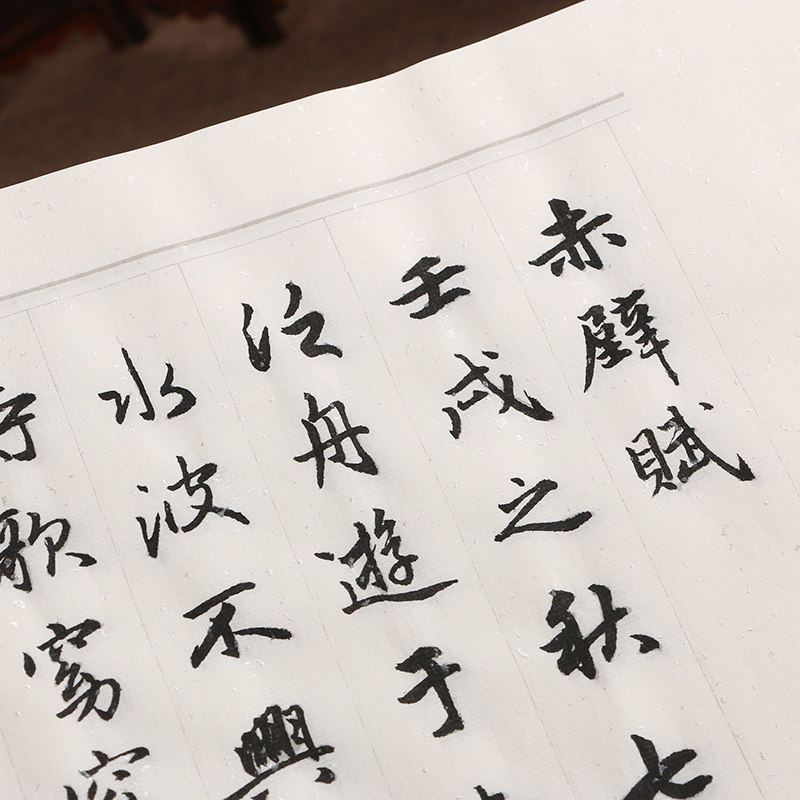 赤壁賦
壬戌之秋七
泛舟遊于
水波不興
歌窈窕